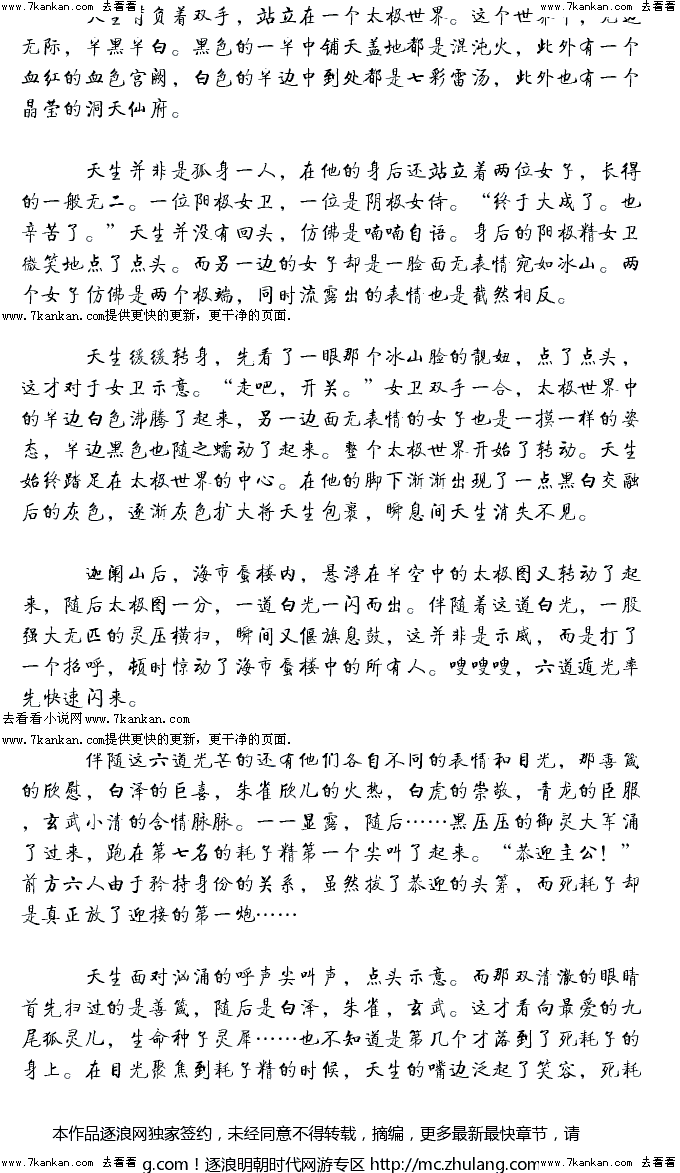 www.7kankan.com 去看看 www.7kankan.com 去看看 www.7kankan.com 去看看
天生背负着双手，站立在一个太极世界。这个世界中，无边
无际，半黑半白。黑色的一半中铺天盖地都是混沌火，此外有一个
血红的血色宫阙，白色的半边中到处都是七彩雷汤，此外也有一个
晶莹的洞天仙府。
天生并非是孤身一人，在他的身后还站立着两位女子，长得
的一般无二。一位阳极女卫，一位是阴极女侍。“终于大成了。也
辛苦了。”天生并没有回头，仿佛是喃喃自语。身后的阳极精女卫
微笑地点了点头。而另一边的女子却是一脸面无表情宛如冰山。两
个女子仿佛是两个极端，同时流露出的表情也是截然相反。
www.7kankan.com提供更快的更新，更干净的页面.
天生缓缓转身，先看了一眼那个冰山脸的靓妞，点了点头，
这才对于女卫示意。“走吧，开关。”女卫双手一合，太极世界中
的半边白色沸腾了起来，另一边面无表情的女子也是一摸一样的姿
态，半边黑色也随之蠕动了起来。整个太极世界开始了转动。天生
始终踏足在太极世界的中心。在他的脚下渐渐出现了一点黑白交融
后的灰色，逐渐灰色扩大将天生包裹，瞬息间天生消失不见。
迦阑山后，海市蜃楼内，悬浮在半空中的太极图又转动了起
来，随后太极图一分，一道白光一闪而出。伴随着这道白光，一股
强大无匹的灵压横扫，瞬间又偃旗息鼓，这并非是示威，而是打了
一个招呼，顿时惊动了海市蜃楼中的所有人。嗖嗖嗖，六道遁光率
先快速闪来。
去看看小说网www.7kankan.com
www.7kankan.com提供更快的更新，更干净的页面.
伴随这六道光芒的还有他们各自不同的表情和目光，那喜箴
的欣慰，白泽的巨喜，朱雀欣儿的火热，白虎的崇敬，青龙的臣服
，玄武小清的含情脉脉。一一显露，随后……黑压压的御灵大军涌
了过来，跑在第七名的耗子精第一个尖叫了起来。“恭迎主公！”
前方六人由于矜持身份的关系，虽然拔了恭迎的头筹，而死耗子却
是真正放了迎接的第一炮……
天生面对汹涌的呼声尖叫声，点头示意。而那双清澈的眼睛
首先扫过的是善箴，随后是白泽，朱雀，玄武。这才看向最爱的九
尾狐灵儿，生命种子灵犀……也不知道是第几个才落到了死耗子的
身上。在目光聚焦到耗子精的时候，天生的嘴边泛起了笑容，死耗
本作品逐浪网独家签约，未经同意不得转载，摘编，更多最新最快章节，请
www.7kankan.com 去看看 g.com！逐浪明朝时代网游专区 http://mc.zhulang.com www.7kankan.com 去看看